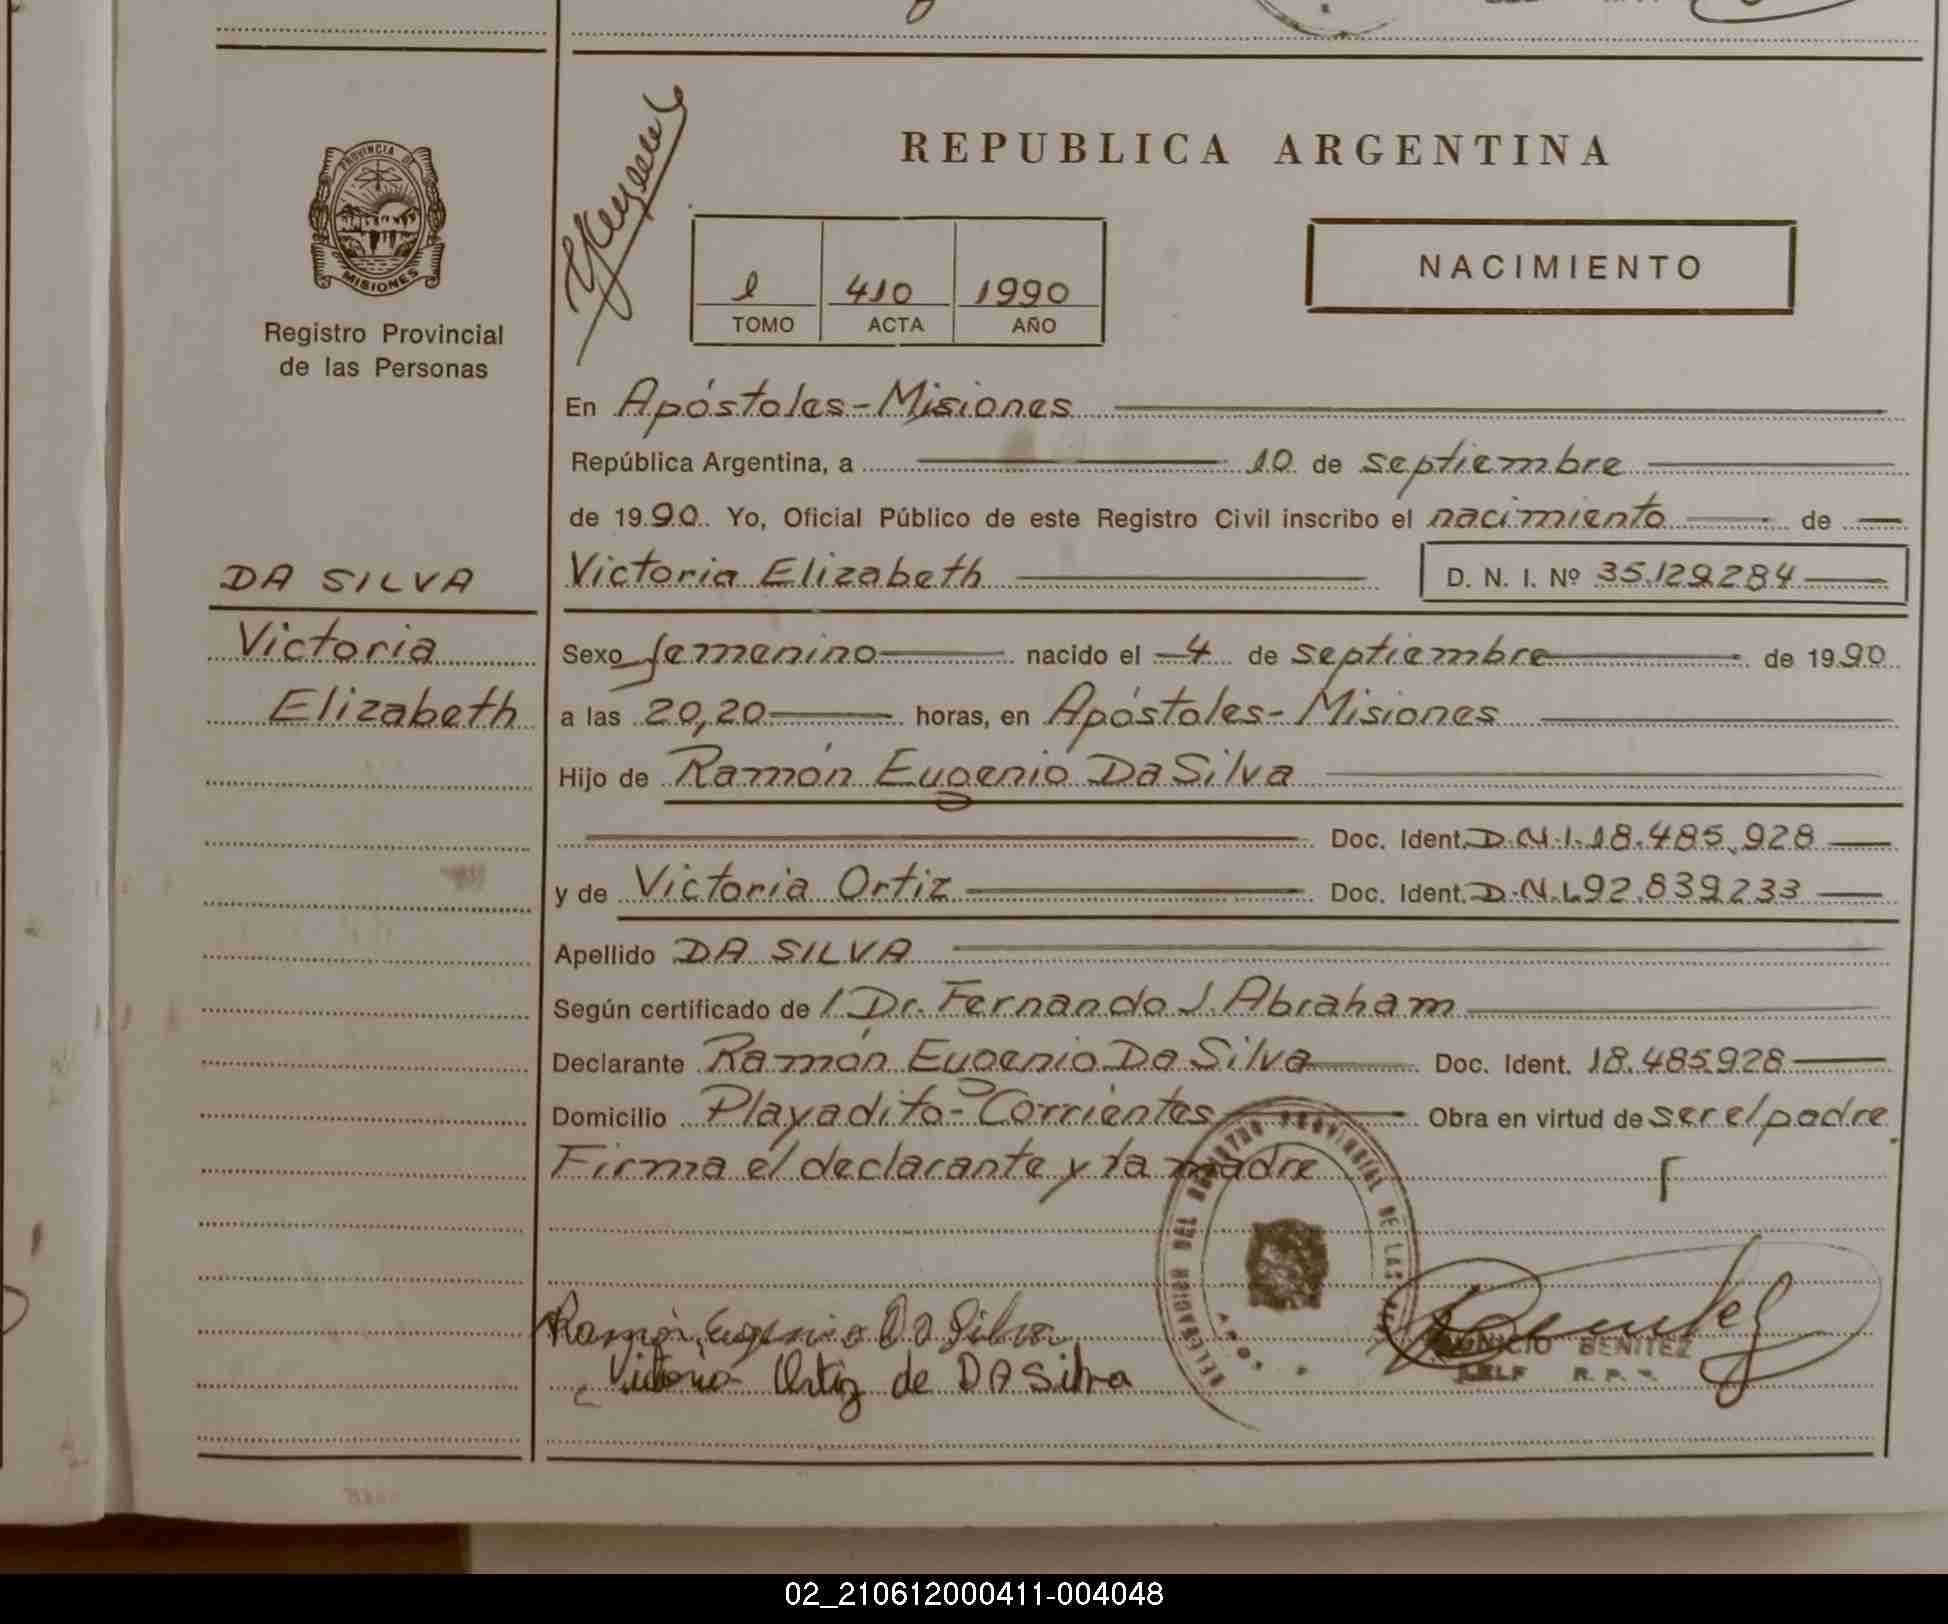 PROVINCIA DE
MISIONES
Registro Provincial
de las Personas
DA SILVA
Victoria
Elizabeth
REPUBLICA ARGENTINA
1 410 1990
TOMO ACTA AÑO
NACIMIENTO
En Apóstoles-Misiones
República Argentina, a 10 de septiembre
de 1990. Yo, Oficial Público de este Registro Civil inscribo el nacimiento de
Victoria Elizabeth D. N. I. Nº 35.129.284
Sexo femenino nacido el 4 de septiembre de 1990
a las 20,20 horas, en Apóstoles-Misiones
Hijo de Ramón Eugenio Da Silva
Doc. Ident. D.N.I. 18.485.928
y de Victoria Ortiz Doc. Ident. D.N.I. 92.839.233
Apellido DA SILVA
Según certificado de / Dr. Fernando J. Abraham
Declarante Ramón Eugenio Da Silva Doc. Ident. 18.485.928
Domicilio Playadito-Corrientes Obra en virtud de ser el padre.
Firma el declarante y la madre
DELEGACION DEL REGISTRO PROVINCIAL DE LAS
Ramón Eugenio Da Silva
Victoria Ortiz de DA Silva
BENITEZ
R. P.
02_210612000411-004048